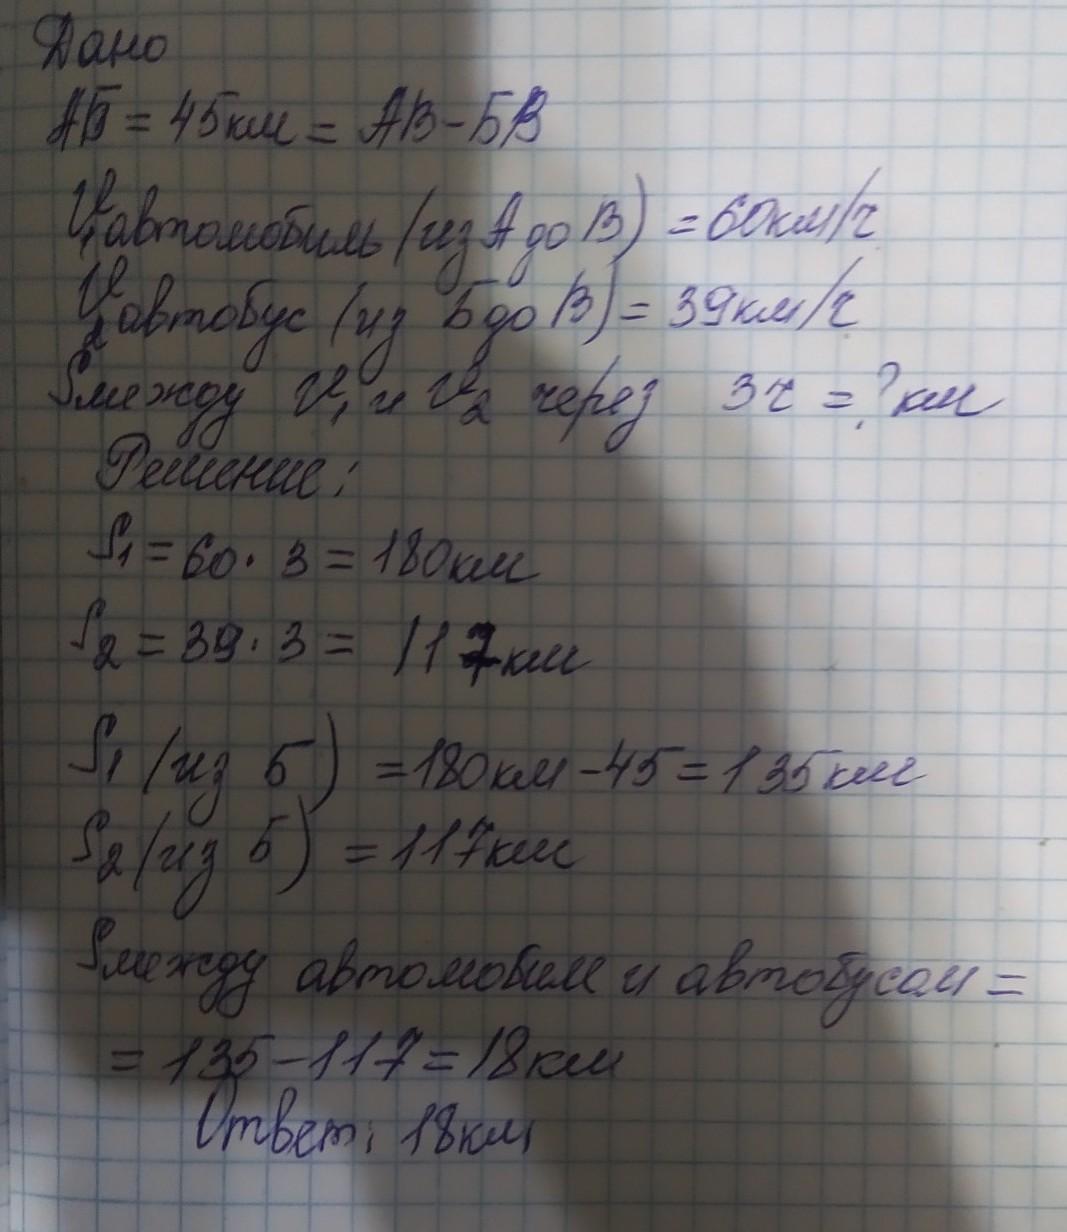 Дано
АБ = 45км = АВ - БВ
V₁автомобиль (из А до В) = 60км/ч
V₂автобус (из Б до В) = 39км/ч
Sмежду V₁ и V₂ через 3ч = ? км
Решение:
S₁ = 60 · 3 = 180км
S₂ = 39 · 3 = 117км
S₁ (из Б) = 180км - 45 = 135км
S₂ (из Б) = 117км
Sмежду автомобилем и автобусом =
= 135 - 117 = 18км
Ответ: 18км